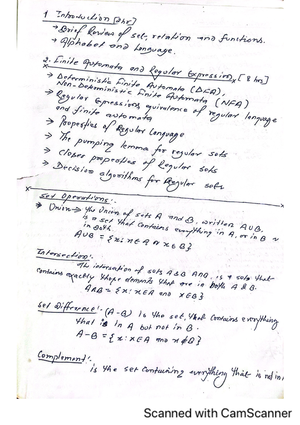 1. Introduction [2hr]
→ Brief Review of set, relation and functions.
→ Alphabet and Language.
2. Finite Automata and Regular Expression [8 hr]
→ Deterministic Finite Automata (DFA),
Non-Deterministic Finite Automata (NFA)
→ Regular Expressions equivalence of regular language
and finite automata
→ Properties of Regular Language
→ The pumping lemma for regular sets
→ closer properties of Regular sets
→ Decision algorithms for Regular sets
Set Operations:-
→ Union → The Union of sets A and B, written A∪B,
is a set that contains everything in A, or in B
in both.
A∪B = {x: x∈A or x∈B}
Intersection:-
The intersection of sets A&B A∩B, is a sets that
contains exactly those elements that are in both A & B.
A∩B = {x: x∈A and x∈B}
Set Difference:- (A-B) is the set, that contains everything
that is in A but not in B.
A-B = {x: x∈A and x∉B}
Complement:-
is the set containing everything that is not in
Scanned with CamScanner